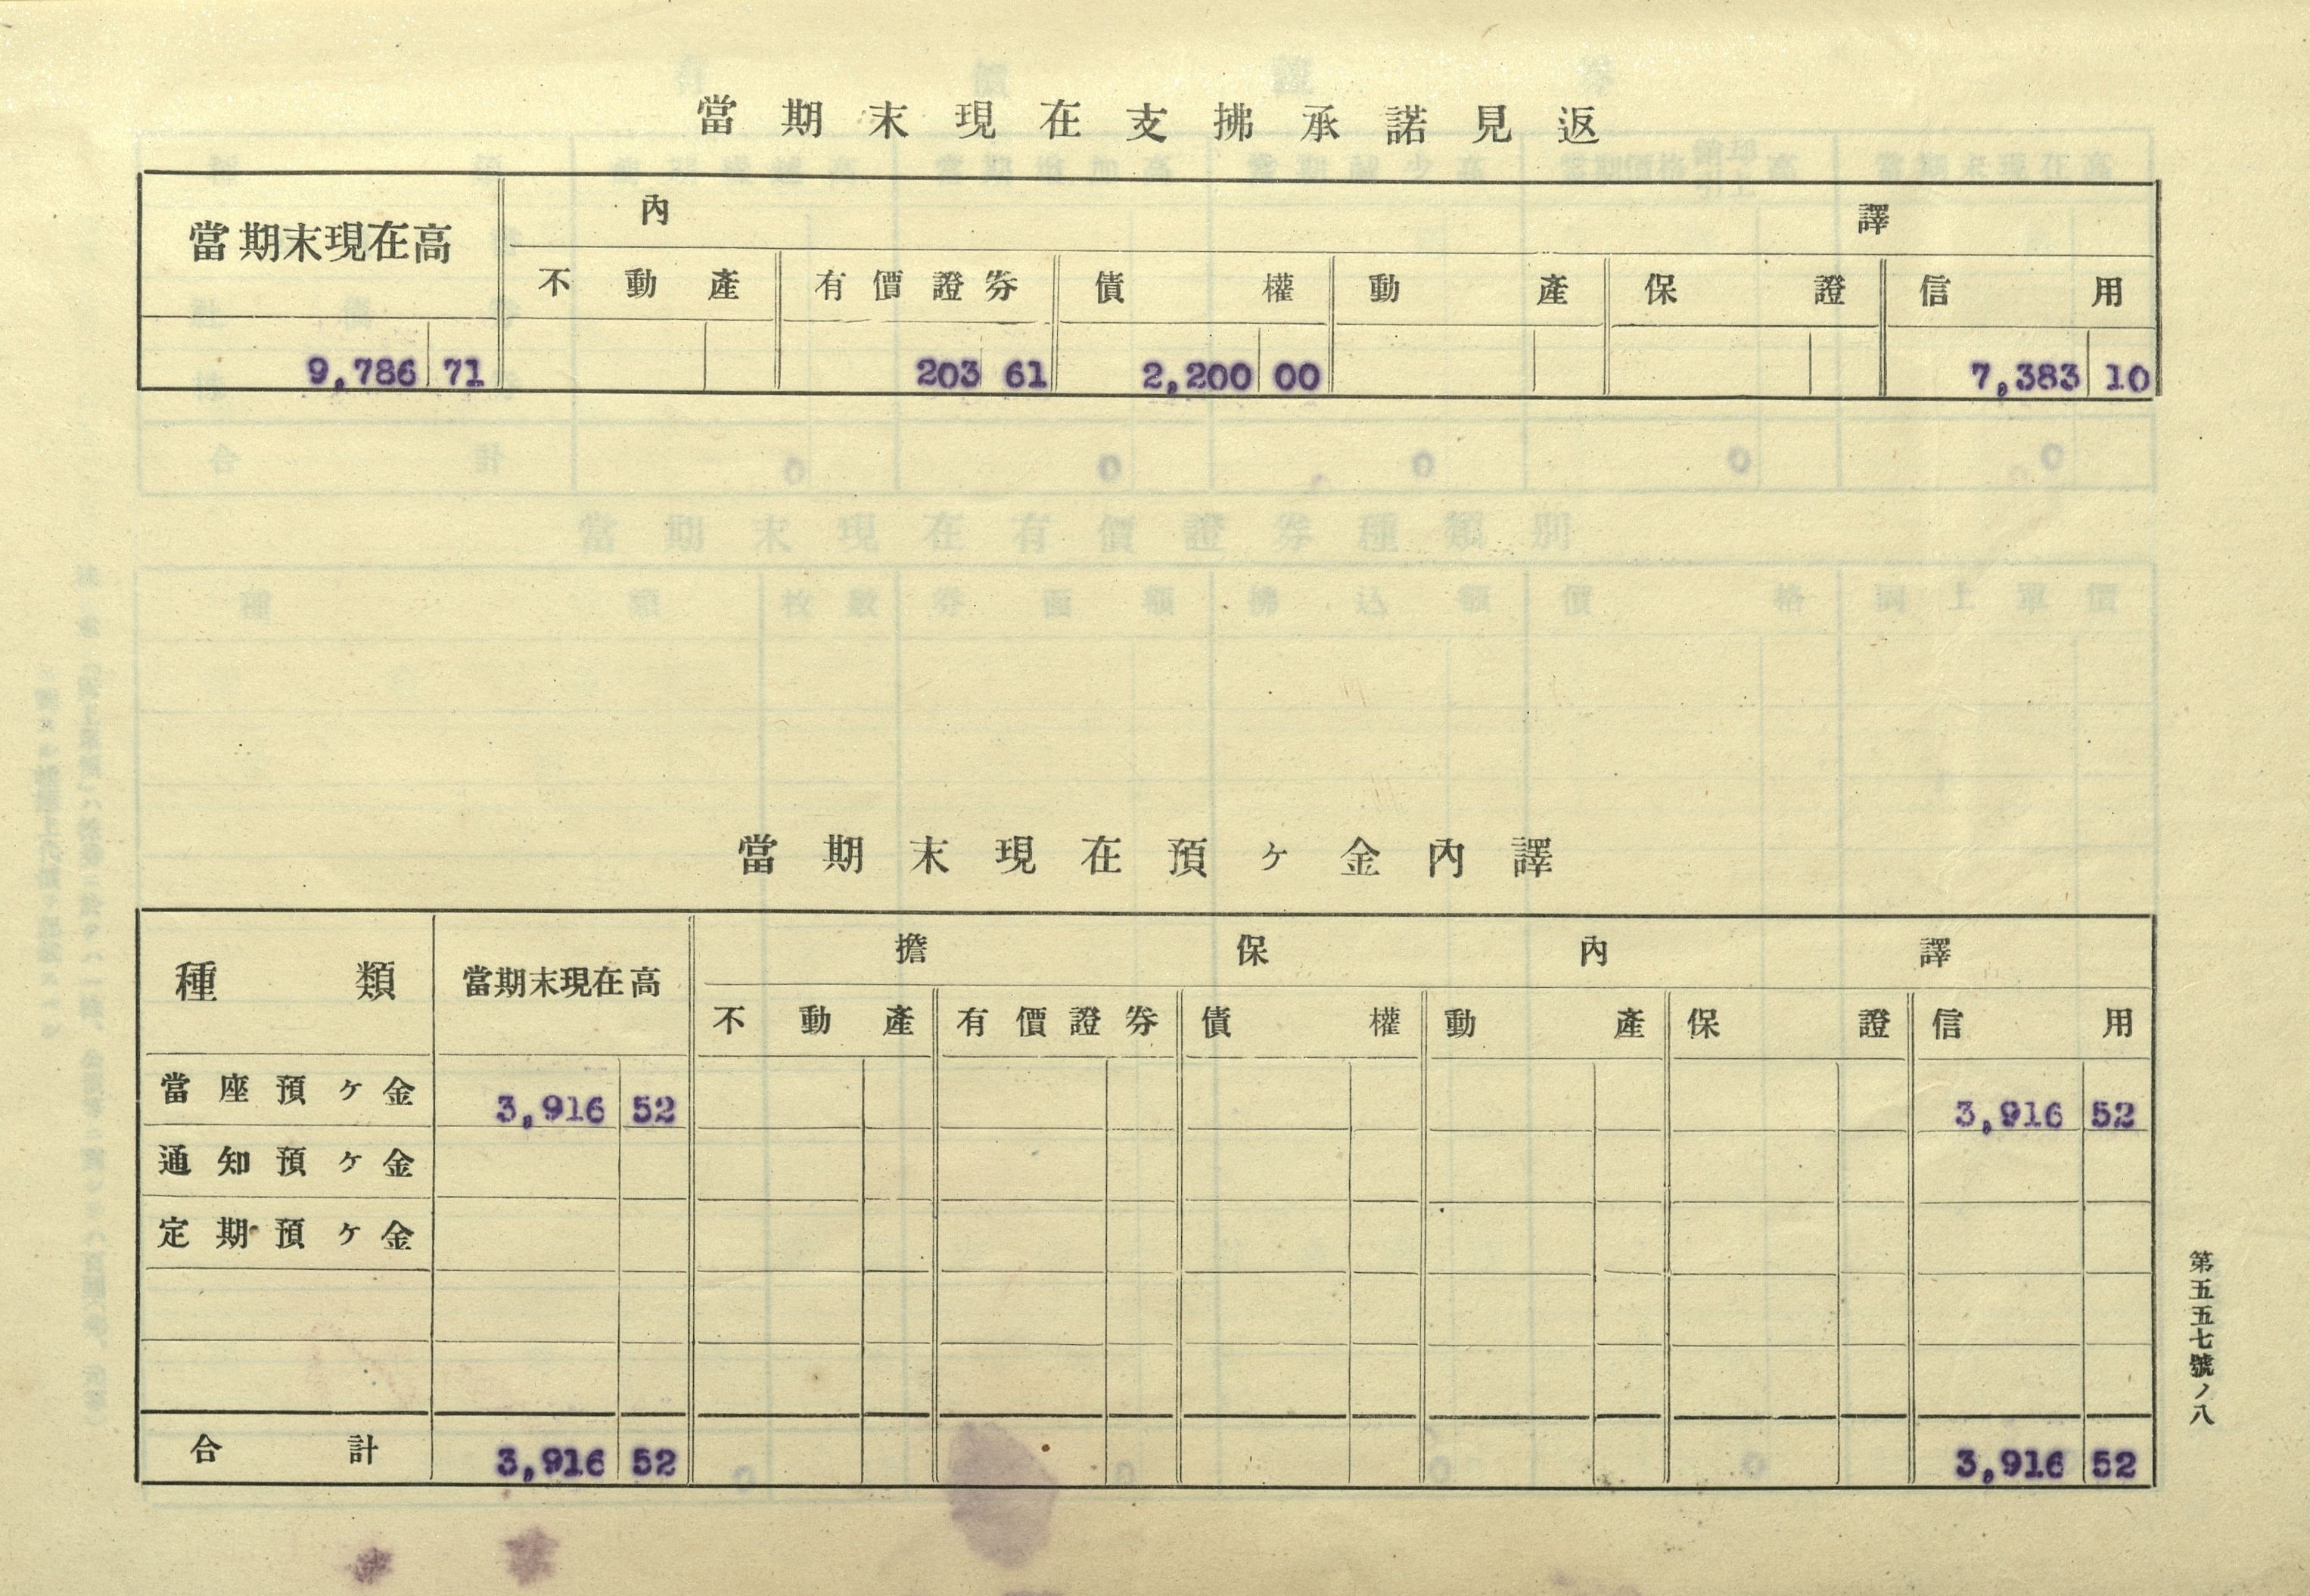 當期末現在支拂承諾見返
當期末現在高 內譯
不動產 有價證券 債權 動產 保證 信用
9,786 71 203 61 2,200 00 7,383 10
當期末現在預ヶ金內譯
種類 當期末現在高 擔保內譯
不動產 有價證券 債權 動產 保證 信用
當座預ヶ金 3,916 52 3,916 52
通知預ヶ金
定期預ヶ金
合計 3,916 52 3,916 52
第五五七號ノ八